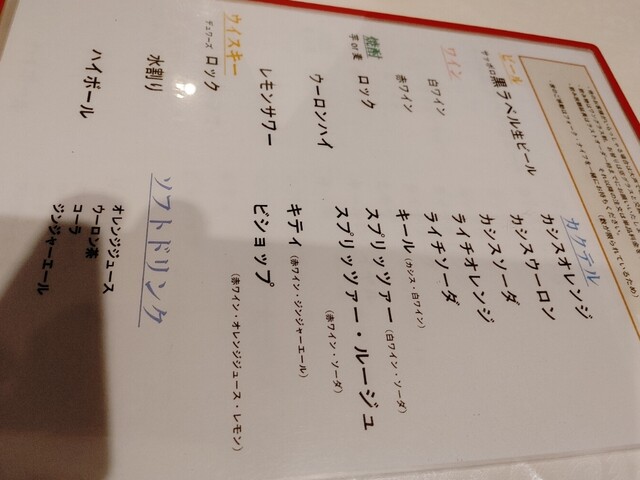 ビール
サッポロ黒ラベル生ビール
ワイン
白ワイン
赤ワイン
焼酎
芋or麦
ロック
ウーロンハイ
レモンサワー
ウイスキー
デュワーズ
ロック
水割り
ハイボール
カクテル
カシスオレンジ
カシスウーロン
カシスソーダ
ライチオレンジ
ライチソーダ
キール(カシス・白ワイン)
スプリッツァー(白ワイン・ソーダ)
スプリッツァー・ルージュ
(赤ワイン・ソーダ)
キティ(赤ワイン・ジンジャーエール)
ビショップ
(赤ワイン・オレンジジュース・レモン)
ソフトドリンク
オレンジジュース
ウーロン茶
コーラ
ジンジャーエール